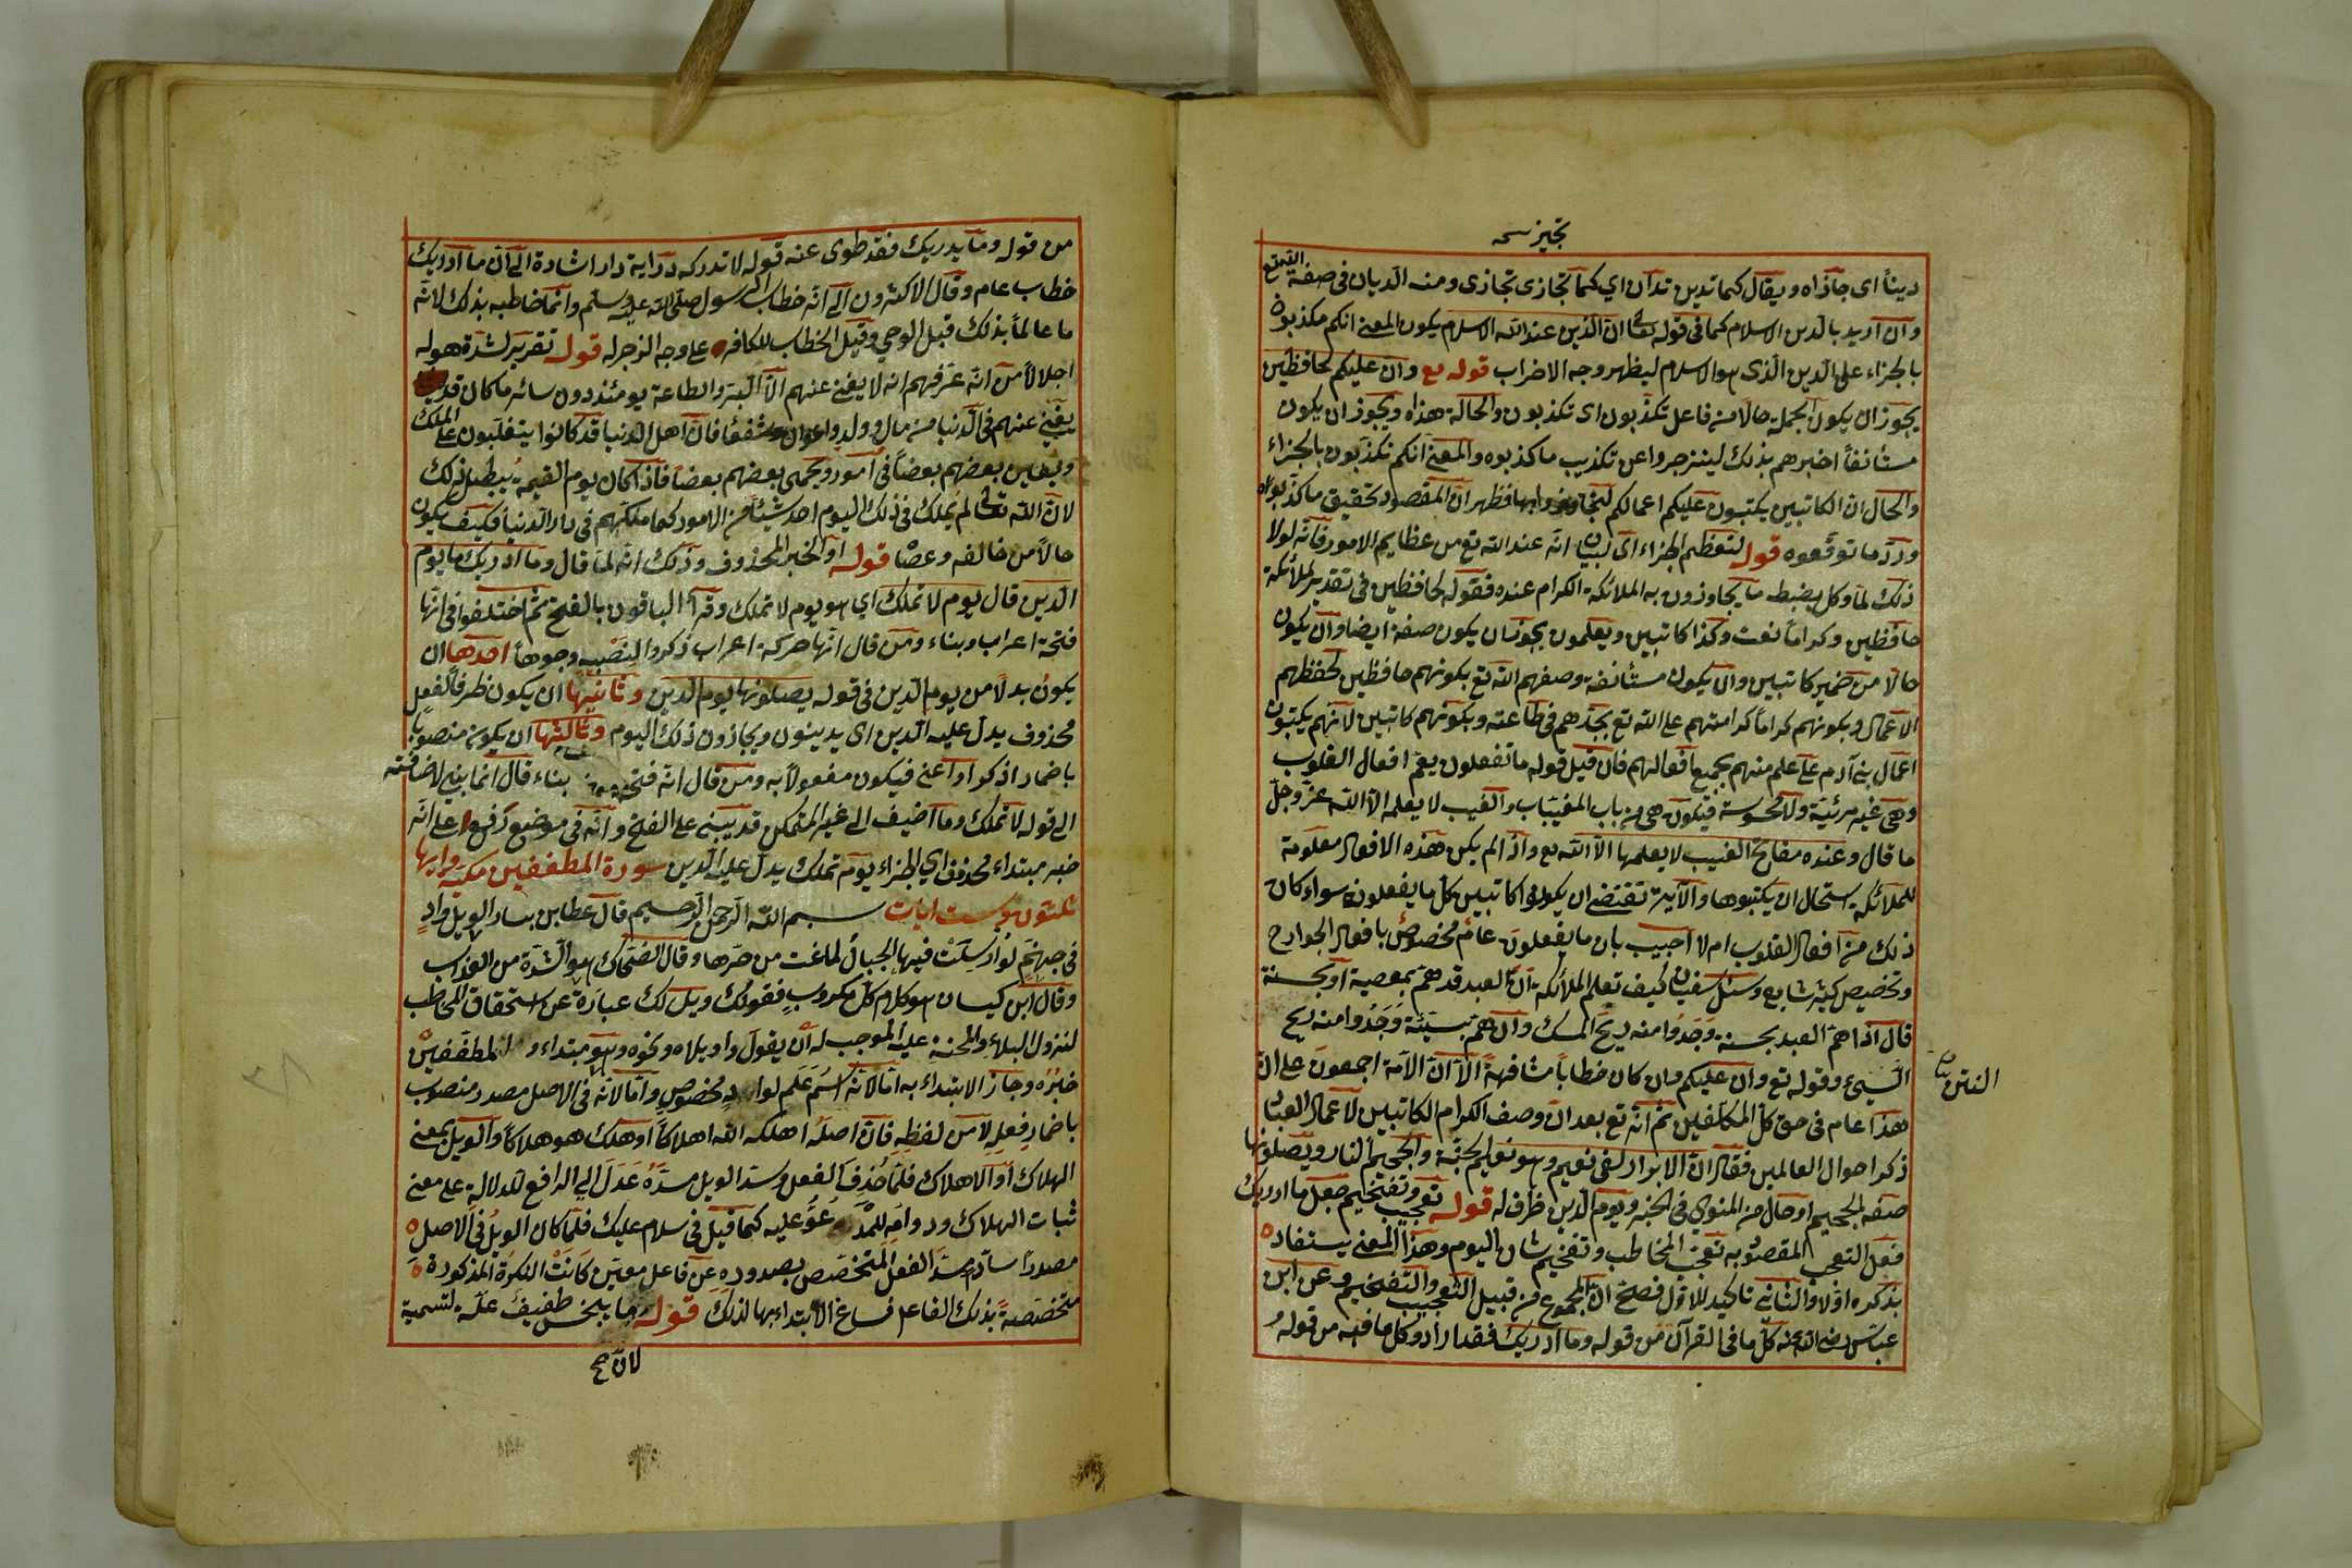 تجيز نسخه
ديناً اى جازاه ويقال كما تدين تدان اي كما تجازى تجازى ومنه الديان فى صفة الله تع
وان اريد بالدين الاسلام كما فى قوله تعالى ان الدين عند الله الاسلام يكون المعنى انكم تكذبون
بالجزاء على الدين الذى هو الاسلام ليظهر وجه الاضراب قوله تع وان عليكم لحافظين
يجوز ان يكون الجملة حالا من فاعل تكذبون اى تكذبون والحالة هذاه ويجوز ان يكون
مستأنفاً اخبرهم بذلك لينزجروا عن تكذيب ما كذبوه والمعنى انكم تكذبون بالجزاء
والحال ان الكاتبين يكتبون عليكم اعمالكم لتجازوا بها فظهر ان المقصود تحقيق ما كذبوا به
ورد ما توقعوه قوله لتعظيم الجزاء اى لبيان انه عند الله تع من عظايم الامور فانه لولا
ذلك لما وكل بضبط ما يجازون به الملائكة الكرام عنده فقوله لحافظين فى تقدير لملائكة
حافظين وكراماً نعت وكذا كاتبين ويعلمون يجوز ان يكون صفة ايضا وان يكون
حالا من ضمير كاتبين وان يكون مستأنفة وصفهم الله تع بكونهم حافظين لحفظهم
الاعمال وبكونهم كراماً كرامتهم على الله تع بجدهم فى طاعته وبكونهم كاتبين لانهم يكتبون
اعمال بنى آدم على علم منهم بجميع افعالهم فان قيل قوله ما تفعلون يعم افعال القلوب
وهى غير مرئية ولا محسوسة فتكون هى من باب المغيبات والغيب لا يعلمه الا الله عز وجل
ما قال وعنده مفاتح الغيب لا يعلمها الا الله تع واذا لم يكن هذه الافعال معلومة
للملائكة استحال ان يكتبوها والآية تقتضى ان يكونوا كاتبين كل ما يفعلون سواء كان
ذلك من افعال القلوب ام لا اجيب بان ما يفعلون عام مخصوص بافعال الجوارح
وتخصيص كثير شايع وسئل سفيان كيف تعلم الملائكة ان العبد قد هم بمعصية او بحسنة
قال اذا هم العبد بحسنة وَجَدُوا منه ريح المسك وان هم بسيئة وَجَدُوا منه ريح
السيئ وقوله تع وان عليكم وان كان خطاباً مشافهة الا ان الامة اجمعون على ان
النتن
هذا عام فى حق كل المكلفين ثم انه تع بعد ان وصف الكرام الكاتبين لاعمال العباد
ذكر احوال العالمين فقال ان الابرار لفى نعيم وهو نعيم الجنة والجحيم النار ويصلونها
صفة الجحيم او حال من المنوى فى الخبر ويوم الدين ظرف له قوله تعجيب وتفخيم جعل ما ادريك
فعل التعجب المقصود به تعجيب المخاطب وتفخيم شان اليوم وهذا المعنى يستفاد
بذكره اولا والثانى تاكيد للاول فصلح ان المجموع من قبيل التعجيب والتفخيم وعن ابن
عباس رضى الله عنه كل ما فى القرآن من قوله وما ادريك فقد ادراه وكل ما فيه من قوله
من قوله وما يدريك فقد طوى عنه قوله لا تدركه دراية دار اشارة الى ان ما ادريك
خطاب عام وقال الاكثرون الى انه خطاب الرسول صلى الله عليه وسلم وانما خاطبه بذلك لانه
ما عالماً بذلك قبل الوحي وقيل الخطاب للكافر على وجه الزجر له قوله تقرير لشدة هوله
اجلالاً من انه عرفهم انه لا يغنى عنهم الا البر والطاعة يومئذ دون سائر ما كان قد
يغنى عنهم فى الدنيا من مال وولد واعوان وشفعا فان اهل الدنيا قد كانوا يتغلبون على الملك
ويعاين بعضهم بعضاً فى امور ويحمى بعضهم بعضا فاذا كان يوم القيمة يبطل ذلك
لان الله تعالى لم يملك فى ذلك اليوم احد شيئا من الامور كما ملكهم فى دار الدنيا فكيف يكون
حالا من خالفه وعصا قوله او الخبر المحذوف وذلك انه لما قال وما ادريك ما يوم
الدين قال يوم لا تملك اي هو يوم لا تملك وقرأ الباقون بالفتح ثم اختلفوا فى انها
فتحة اعراب وبناء ومن قال انها حركة اعراب ذكر والنصبه وجوهاً احدها ان
يكون بدلا من يوم الدين فى قوله يصلونها يوم الدين وثانيها ان يكون ظرفاً لفعل
محذوف يدل عليه الدين اى يدينون ويجازون ذلك اليوم وثالثها ان يكون منصوبا
باضمار اذكر او اعنى فيكون مفعولاً به ومن قال انه فتحة بناء قال انما بنى لاضافته
الى قوله لا تملك وما اضيف الى غير المتمكن قد يبنى على الفتح وانه فى موضع رفع اعلى انه
خبر مبتداء محذوف اي الجزاء يوم تملك ويدل عليه الدين سورة المطففين مكية وايها
ثلثون وست ايات بسم الله الرحمن الرحيم قال عطا بن يسار الويل وادٍ
فى جهنم لو ارسلت فيها الجبال لماعت من حرها وقال الضحاك هو الشدة من العذاب
وقال ابن كيسان هو كلام كل مكروب فقولك ويل لك عبارة عن استحقاق المخاطب
لنزول البلاء والمحنة عليه الموجب له ان يقول واويلاه ونحوه وهو مبتداء و المطففين
خبره وجاز الابتداء به اما لانه اسم علم لواد مخصوص واما لانه فى الاصل مصدر منصوب
باضمار فعل لا من لفظه فان اصله اهلكه الله اهلاكاً او هلك هو هلاكاً والويل بمعنى
الهلاك او الاهلاك فلما حذف الفعل وسد الويل مسده عدل الى الرافع للدلالة على معنى
ثبات الهلاك ودوامه للمدعو عليه كما قيل فى سلام عليك فلما كان الويل فى الاصل
مصدراً ساداً مسد الفعل المتخصص بصدوره عن فاعل معين كانت النكرة المذكورة
متخصصة بذلك الفاعل فساغ الابتداء بها لذلك قوله ما يبخس طفيف علة لتسمية
لان صح